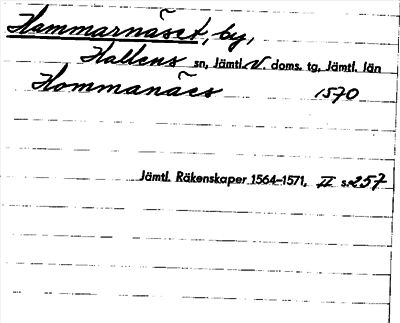 Hammarnäset, by,
Hallens sn, Jämtl. V. doms. tg, Jämtl. län
Hommanäes 1570
Jämtl. Räkenskaper 1564-1571, II s. 257